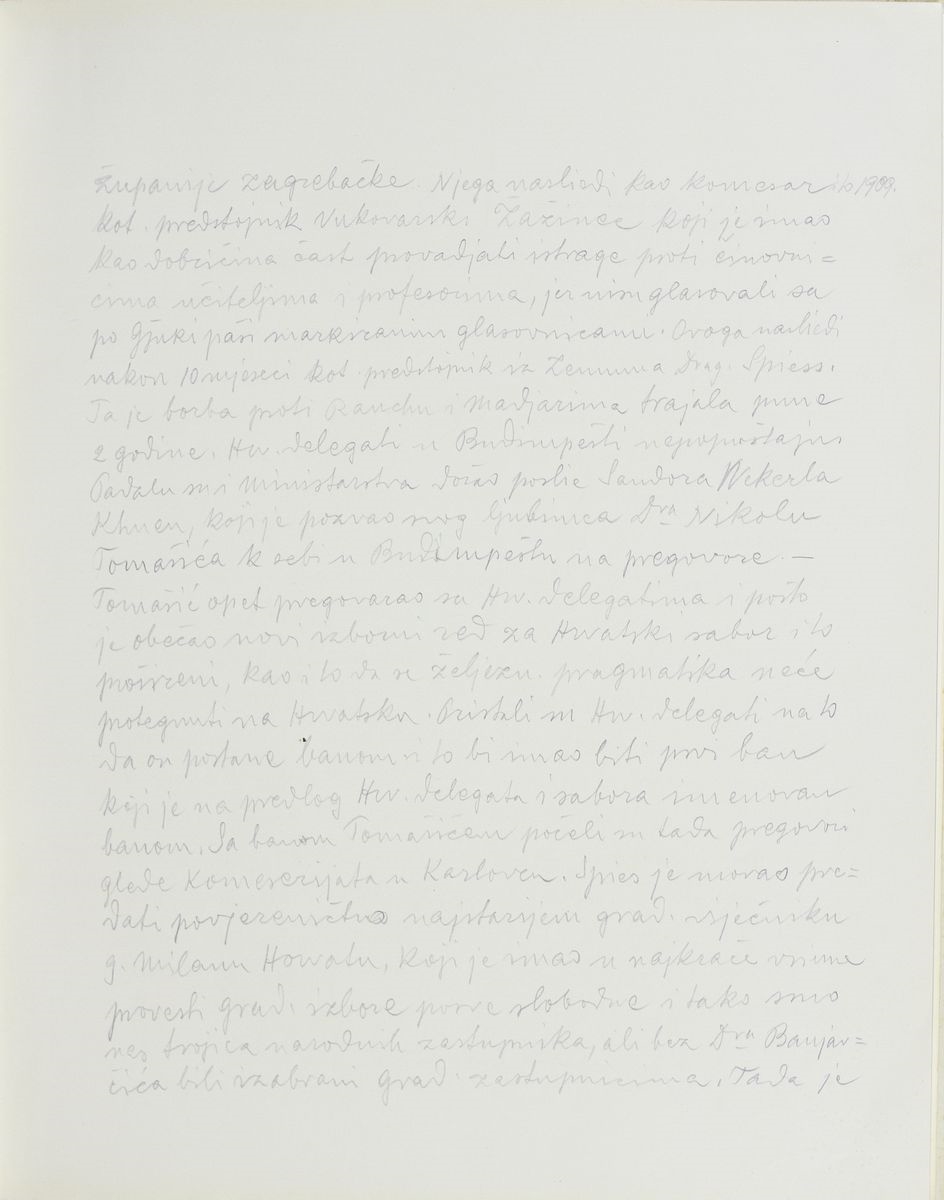 županije zagrebačke. Njega nasliedi kao komesar ito 1909.
kot. predstojnik Vukovarski Žažince koji je imao
kao dobričina čast provadjati istrage proti činovni=
cima učiteljima i profesorima, jer nisu glasovali sa
po Gjuki paši markiranim glasovnicama. Ovoga nasliedi
nakon 10 mjeseci kot. predstojnik iz Zemuna Drag. Spiess.
Ta je borba proti Rauchu i Madjarima trajala pune
2 godine. Hrv. delegati u Budimpešti nepopuštaju.
Padalu su i ministarstva došao poslie Sandora Wekerla
Khuen, koji je pozvao svog ljubimca Dra Nikolu
Tomašića k sebi u Budimpeštu na pregovore. —
Tomašić opet pregovarao sa Hrv. delegatima i pošto
je obećao novi izborni red za Hrvatski sabor i to
prošireni, kao i to da se željezn. pragmatika neće
protegnuti na Hrvatsku. Pristali su Hrv. delegati na to
da on postane banom i to bi imao biti prvi ban
koji je na predlog Hrv. delegata i sabora imenovan
banom. Sa banom Tomašićem počeli su tada pregovori
glede Komeserijata u Karlovcu. Spies je morao pre=
dati povjereničtvo najstarijem grad. viječniku
g. Milanu Horvatu, koji je imao u najkraće vrieme
provesti grad. izbore posve slobodne i tako smo
nas trojica narodnih zastupnika, ali bez Dra Banjav=
čića bili izabrani grad. zastupnicima. Tada je